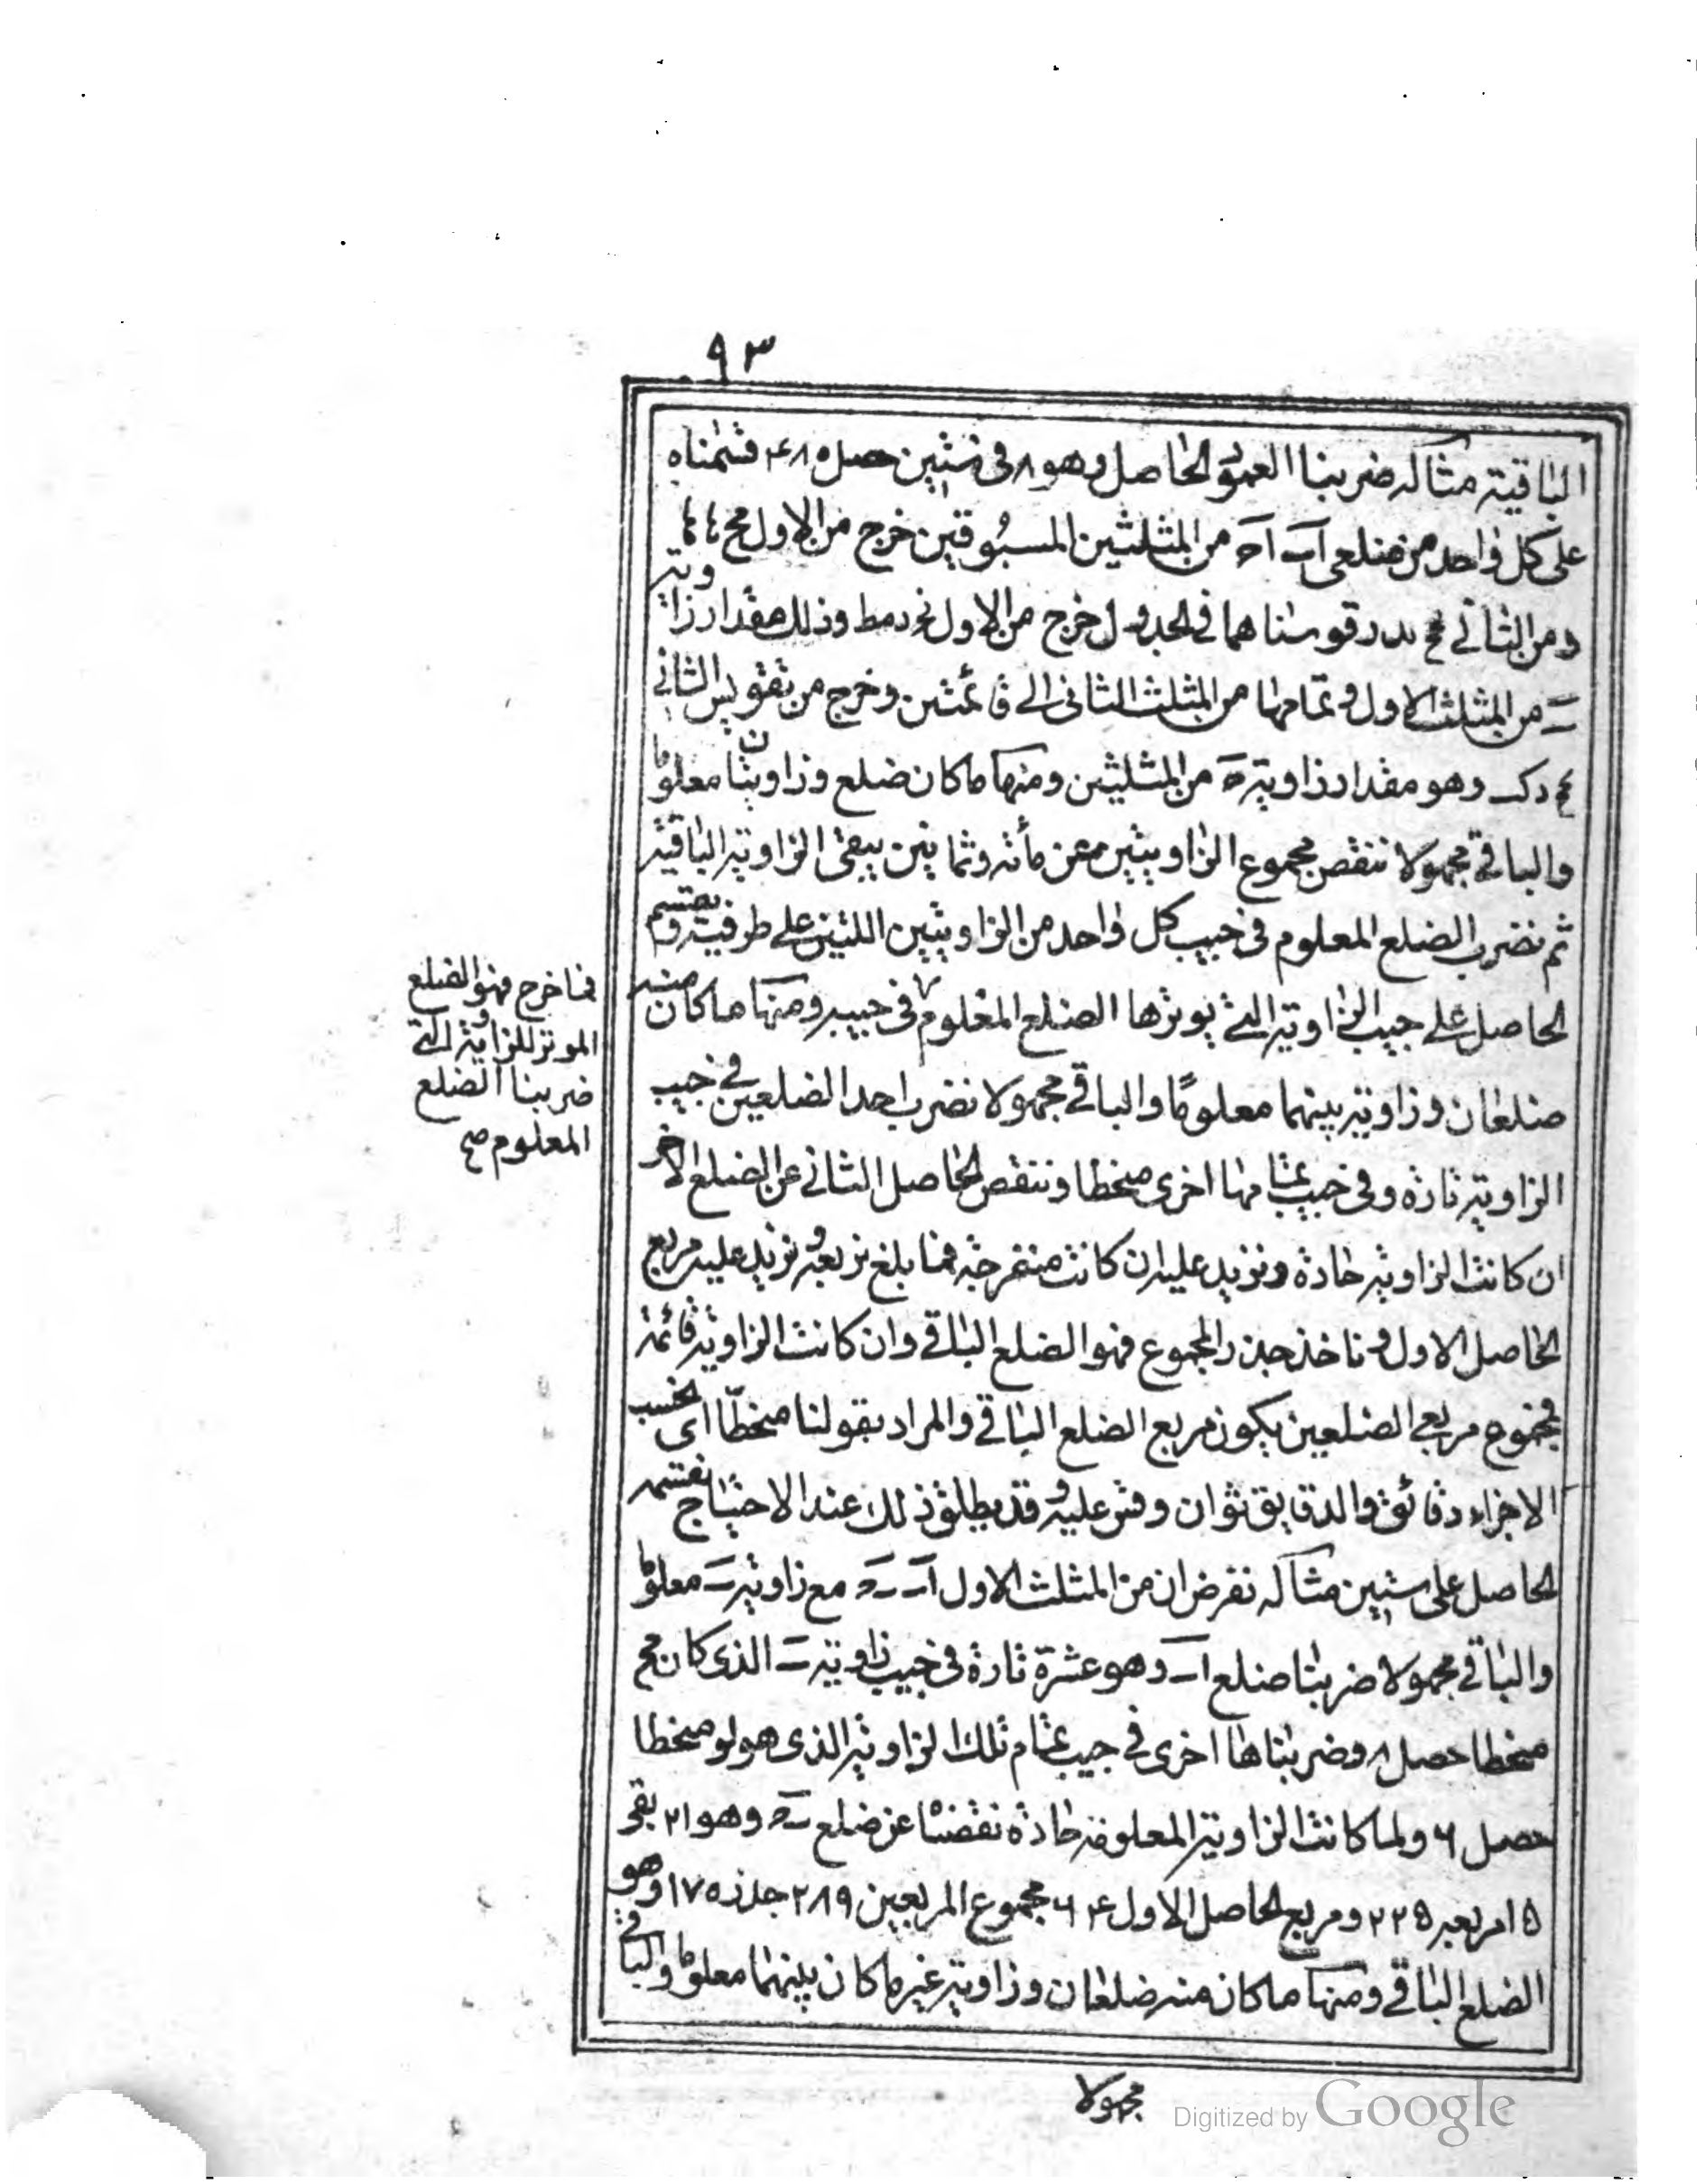 ٩٣
الباقية مثاله ضربنا العمود الحاصل وهو ٨ في ستين حصل ٤٨٠ قسمناه
على كل واحد من ضلعي اب اح من المثلثين المسبوقين خرج من الاول مح ٠ ٠
ومن الثاني قوسناهما في الجدول خرج من الاول نح د مط وذلك مقدار زاوية
ب من المثلث الاول وتمامها من المثلث الثاني الى قائمتين وخرج من تقويس الثاني
وهو مقدار زاوية ح من المثلثين ومنها ما كان ضلع وزاويتان معلوما
والباقي مجهولا ننقص مجموع الزاويتين عن مائة وثمانين يبقى الزاوية الباقية
ثم نضرب الضلع المعلوم في جيب كل واحد من الزاويتين اللتين على طرفيه ونقسم
الحاصل على جيب الزاوية التي يوترها الضلع المعلوم في جيبه ومنها ما كان منه
فما خرج فهو الضلع
الموتر للزاوية التي
ضربنا الضلع
المعلوم صح
ضلعان وزاوية بينهما معلومًا والباقي مجهولا نضرب احد الضلعين في جيب
الزاوية تارة وفي جيب تمامها اخرى منحطا وننقص الحاصل الثاني عن الضلع الاخر
ان كانت الزاوية حادة ونزيد عليه ان كانت منفرجة فما بلغ نربعه ونزيد عليه مربع
الحاصل الاول وناخذ جذر المجموع فهو الضلع الباقي وان كانت الزاوية قائمة
فمجموع مربعي الضلعين يكون مربع الضلع الباقي والمراد بقولنا منحطّا اي نحسب
الاجزاء دقائق والدقايق ثوان وقس عليه وقد يطلق ذلك عند الاحتياج نقسم
الحاصل على ستين مثاله نفرض ان من المثلث الاول اب ب ح مع زاوية ب معلوما
والباقي مجهولا ضربنا ضلع اب وهو عشرة تارة في جيب زاوية ب الذي كان مح
منحطا حصل ٨ وضربناها اخرى في جيب تمام تلك الزاوية الذي هو لو منحطا
حصل ٦ ولما كانت الزاوية المعلومة حادة نقصنا عن ضلع ب ح وهو ٢١ بقي
١٥ مربعه ٢٢٥ ومربع الحاصل الاول ٦٤ مجموع المربعين ٢٨٩ جذره ١٧ وهو
الضلع الباقي ومنها ما كان منه ضلعان وزاوية غير ما كان بينهما معلوما والباقي
مجهولا
Digitized by Google